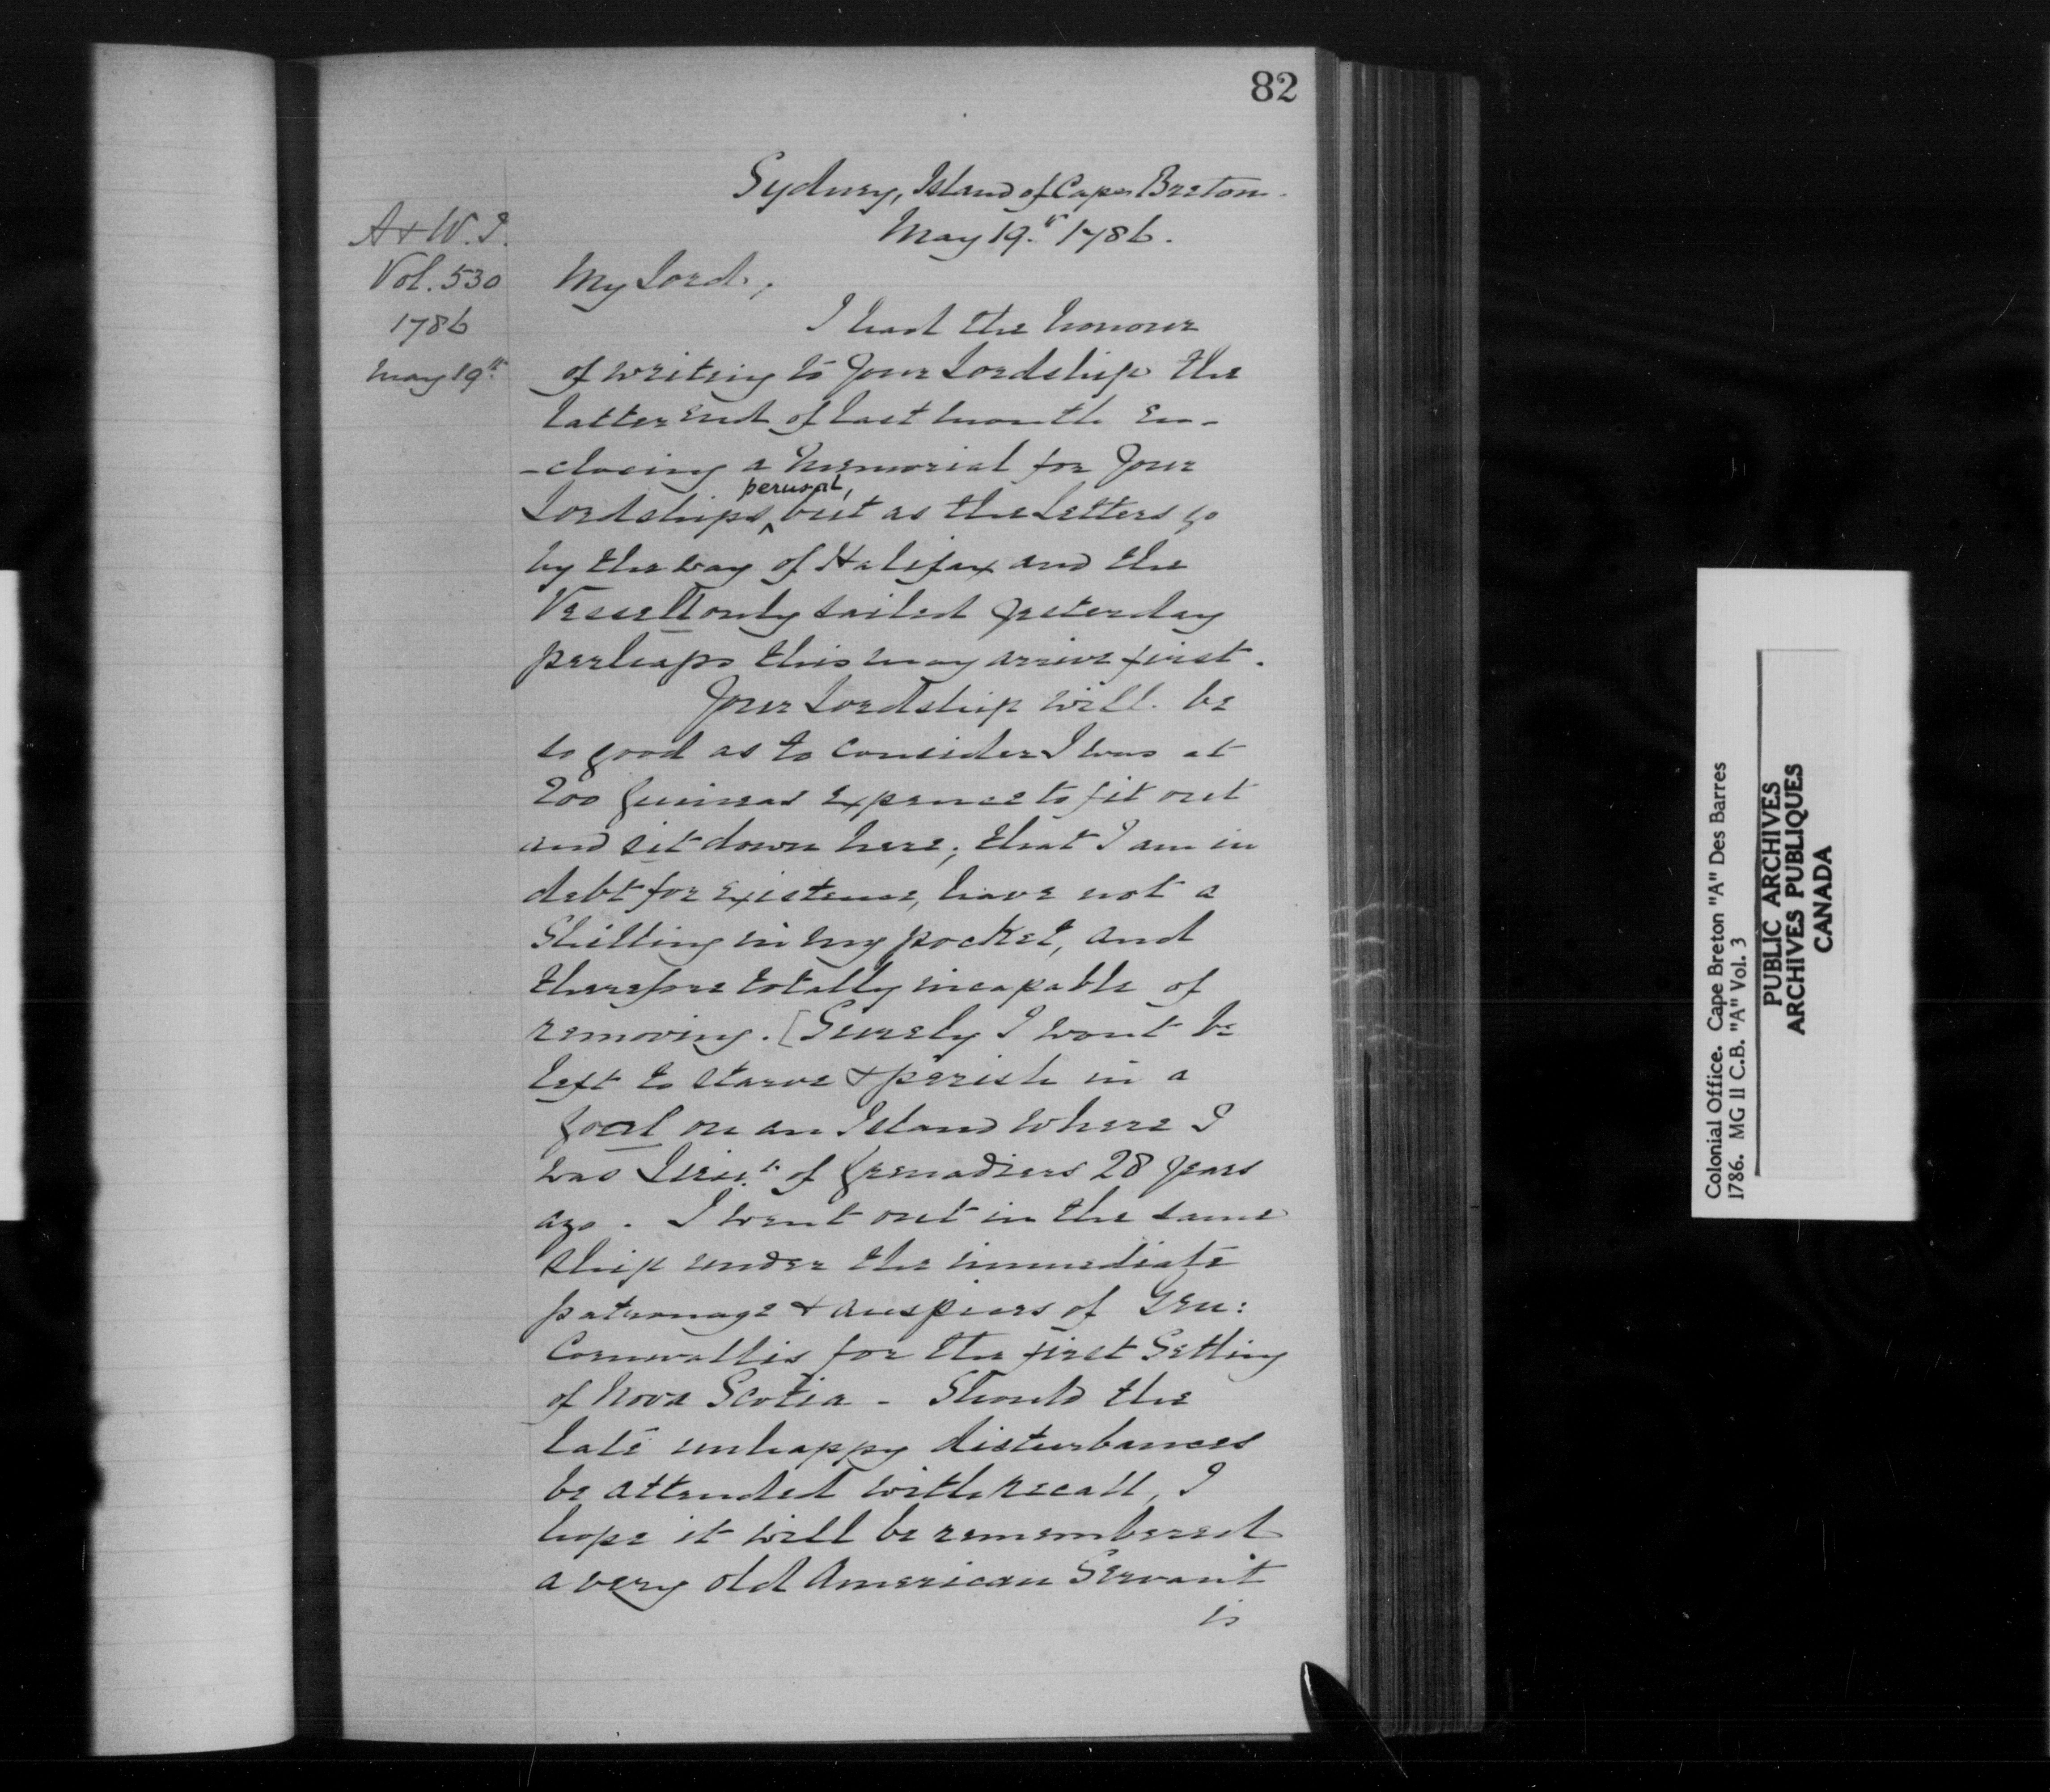 82
Sydney, Island of Cape Breton.
May 19.th 1786.
A & W. I.
Vol. 530
1786
May 19th
My Lord,
I had the honour
of writing to Your Lordship the
latter end of last month en-
-closing a Memorial for Your
Lordships perusal, but as the Letters go
by the way of Halifax and the
Vessell only sailed yesterday
perhaps this may arrive first.
Your Lordship will be
so good as to consider I was at
200 Guineas expence to fit out
and sit down here; that I am in
debt for existence, have not a
Shilling in my pocket, and
therefore totally incapable of
removing. [Surely I wont be
left to starve & perish in a
Goal on an Island where I
was Lieut. of Grenadiers 28 years
ago. I went out in the same
ship under the immediate
patronage & auspices of Gen:
Cornwallis for the first Settling
of Nova Scotia - Should the
late unhappy disturbances
be attended with recall, I
hope it will be remembered
a very old American Servant
is
Colonial Office. Cape Breton "A" Des Barres
1786. MG II C.B. "A" Vol. 3
PUBLIC ARCHIVES
ARCHIVES PUBLIQUES
CANADA